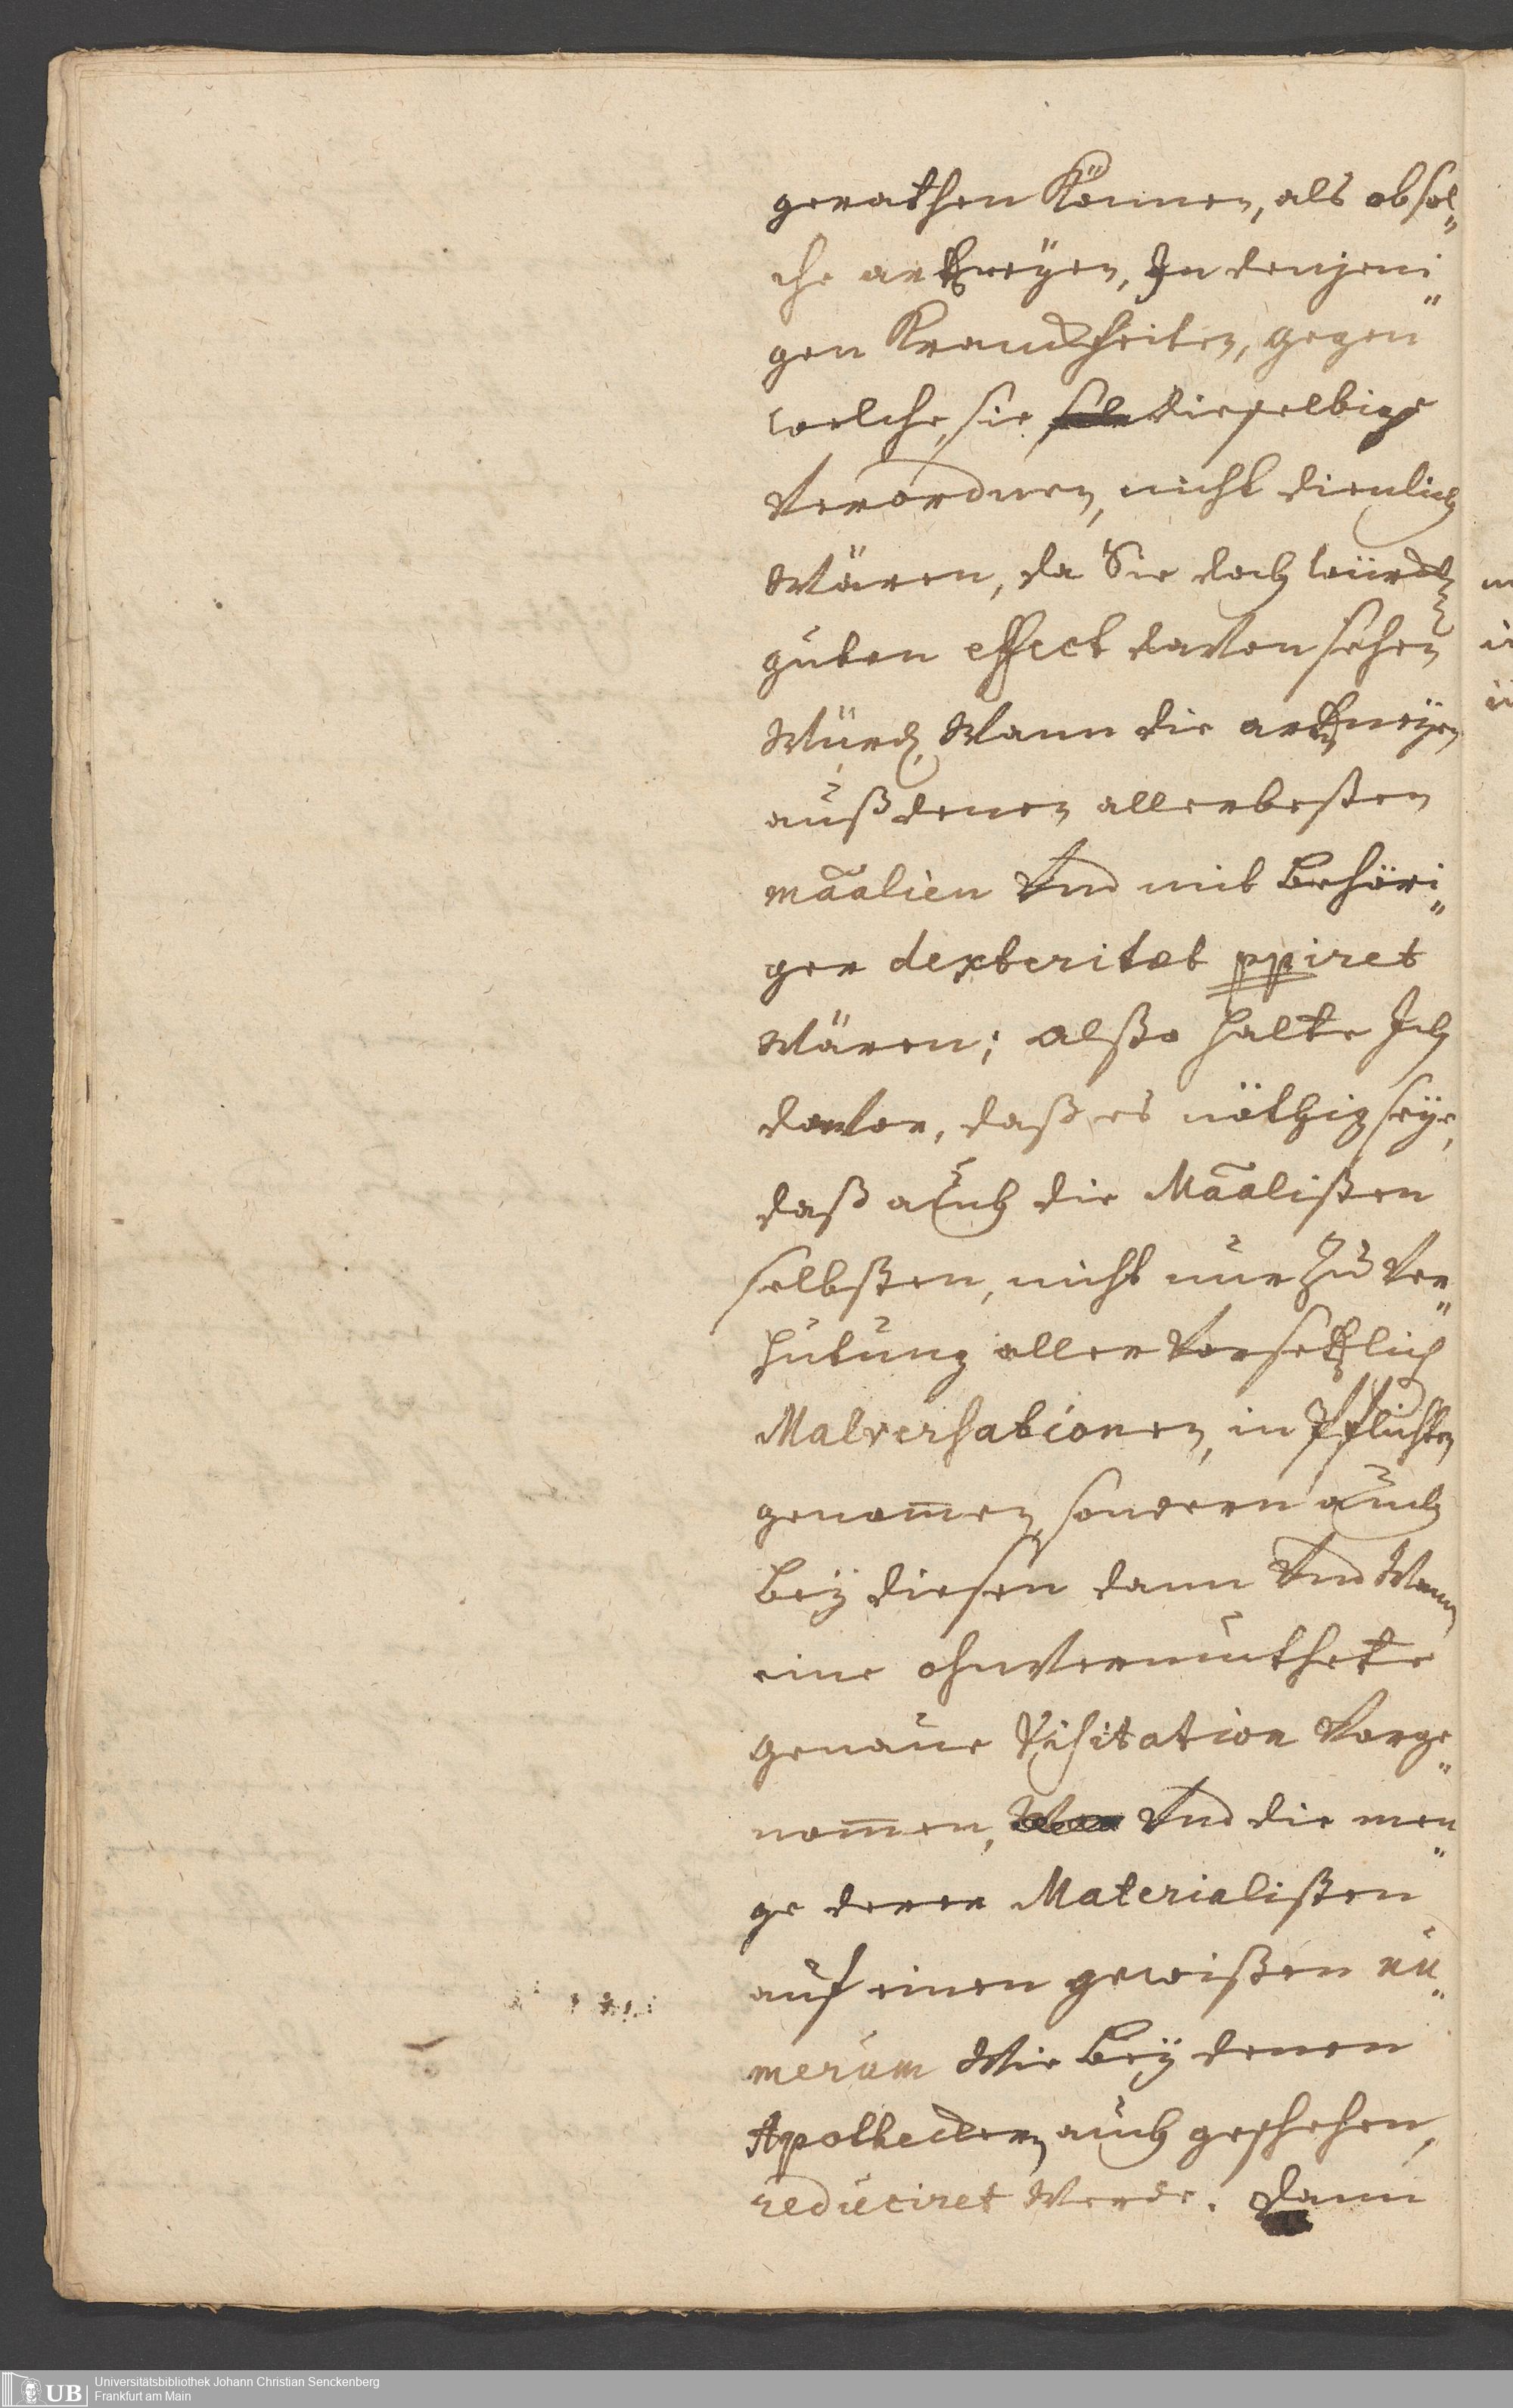 gerathen Können, als ob sol„
che artzneÿen, In denjeni„
gen Kranckheiten, gegen
welche sie dieselbige
Verordnen, nicht dienlich
Wären, da Sie doch
guten effect davon sehen
Würden, Wann die artzneÿen
auß denen allerbesten
mãalien Und mit Behöri„
ger dexteritæt ppiret
Wären; alßo halte Ich
davor, daß es nöthig seÿe,
daß auch die Mãalisten
selbsten, nicht nur Zu Ver„
hütung aller Vorsetzlich
Malversationen, in Pflichten
genom̄en, sondern auch
Beÿ diesen dann Und Wann
eine ohnVermuthete
genaue Visitation Vorge„
nom̄en, Und die men„
ge derer Materialisten
auf einen gewißen nu„
merum Wie Beÿ denen
Apotheckern auch geschehen,
reduciret Werde. Dann
Universitätsbibliothek Johann Christian Senckenberg
Frankfurt am Main
UB